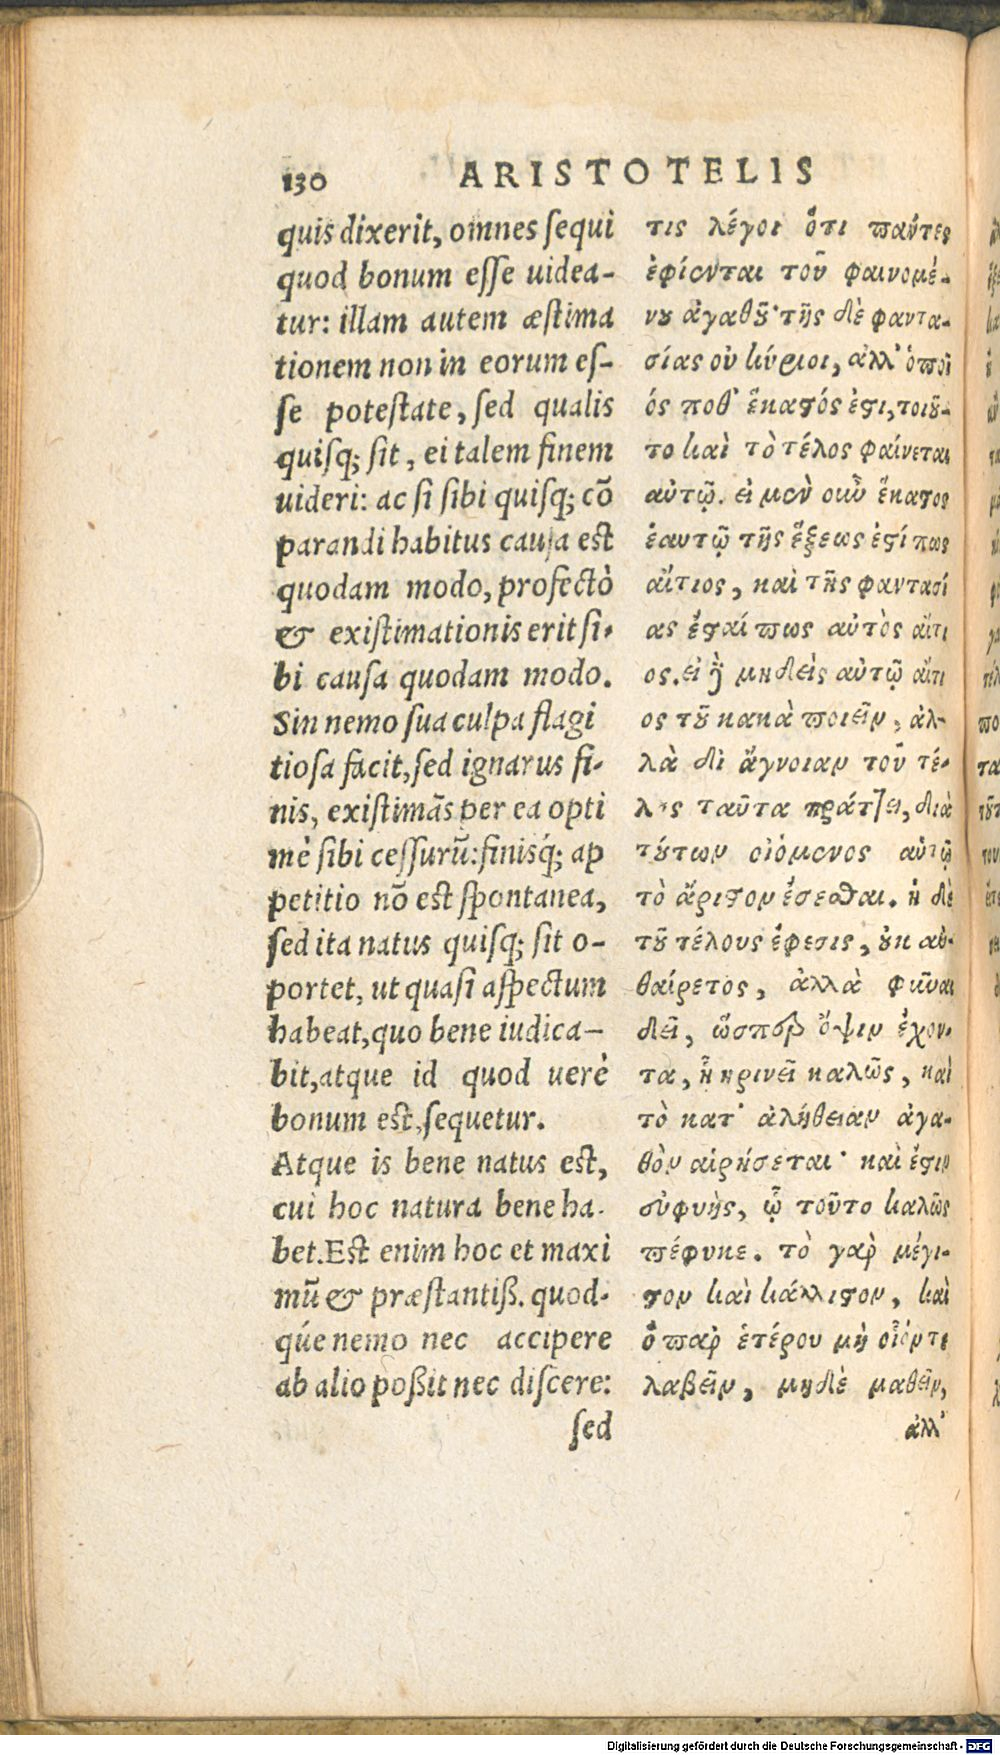 130 ARISTOTELIS
quis dixerit, omnes ſequi
quod bonum eſſe uidea-
tur: illam autem æſtima
tionem non in eorum eſ-
ſe poteſtate, ſed qualis
quiſq; ſit, ei talem finem
uideri: ac ſi ſibi quiſq; cõ
parandi habitus cauſa est
quodam modo, profectò
& exiſtimationis erit ſi-
bi cauſa quodam modo.
Sin nemo ſua culpa flagi
tioſa facit, ſed ignarus fi-
nis, exiſtimãs per ea opti
mè ſibi ceſſurũ: finisq́; ap
petitio nõ est ſpontanea,
ſed ita natus quiſq; ſit o-
portet, ut quaſi aſpectum
habeat, quo bene iudica-
bit, atque id quod uerè
bonum est, ſequetur.
Atque is bene natus est,
cui hoc natura bene ha-
bet. Est enim hoc et maxi
mũ & præſtantiß. quod-
qúe nemo nec accipere
ab alio poßit nec diſcere:
ſed
τις λέγοι ὅτι πάντες
ἐφίενται τοῦ φαινομέ-
νου ἀγαθοῦ· τῆς δὲ φαντα-
σίας οὐ κύριοι, ἀλλ' ὁποῖ
ός ποθ' ἕκαστός ἐστι, τοιοῦ-
το καὶ τὸ τέλος φαίνεται
αὐτῷ. εἰ μὲν οὖν ἕκαστος
ἑαυτῷ τῆς ἕξεως ἐστί πως
αἴτιος, καὶ τῆς φαντασί
ας ἔσται πως αὐτὸς αἴτι
ος. εἰ δὲ μηδεὶς αὐτῷ αἴτι
ος τοῦ κακὰ ποιεῖν, ἀλ-
λὰ δι ἄγνοιαν τοῦ τέ-
λους ταῦτα πράττει, διὰ
τούτων οἰόμενος αὐτῷ
τὸ ἄριστον ἔσεσθαι. ἡ δὲ
τοῦ τέλους ἔφεσις, οὐκ αὐ-
θαίρετος, ἀλλὰ φῦναι
δεῖ, ὥσπερ ὄψιν ἔχον-
τα, ᾗ κρινεῖ καλῶς, καὶ
τὸ κατ' ἀλήθειαν ἀγα-
θὸν αἱρήσεται· καὶ ἔστιν
εὐφυὴς, ᾧ τοῦτο καλῶς
πέφυκε. τὸ γὰρ μέγι-
στον καὶ κάλλιστον, καὶ
ὃ παρ ἑτέρου μὴ οἷόν τε
λαβεῖν, μηδὲ μαθεῖν,
ἀλλ'
Digitalisierung gefördert durch die Deutsche Forschungsgemeinschaft - DFG